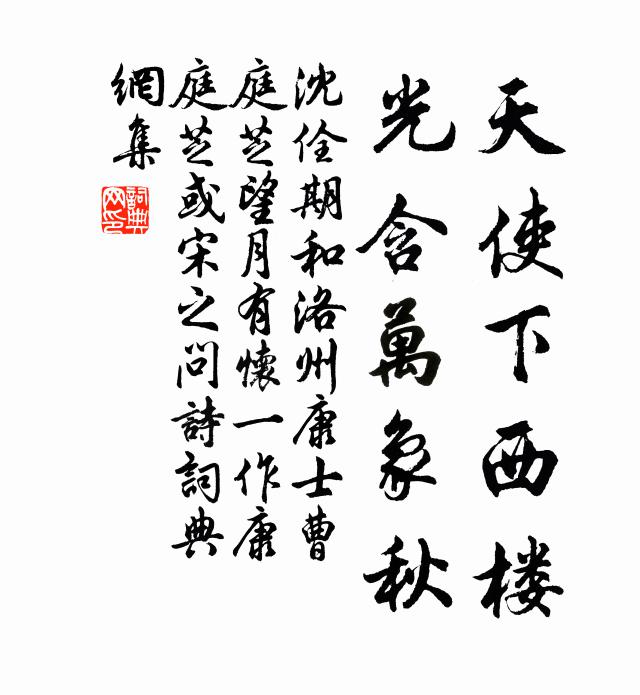 天使下西楼
光含萬象秋
沈佺期和洛州康士曹
庭芝望月有懷一作康
庭芝或宋之問詩詞典
網集
詞典網印